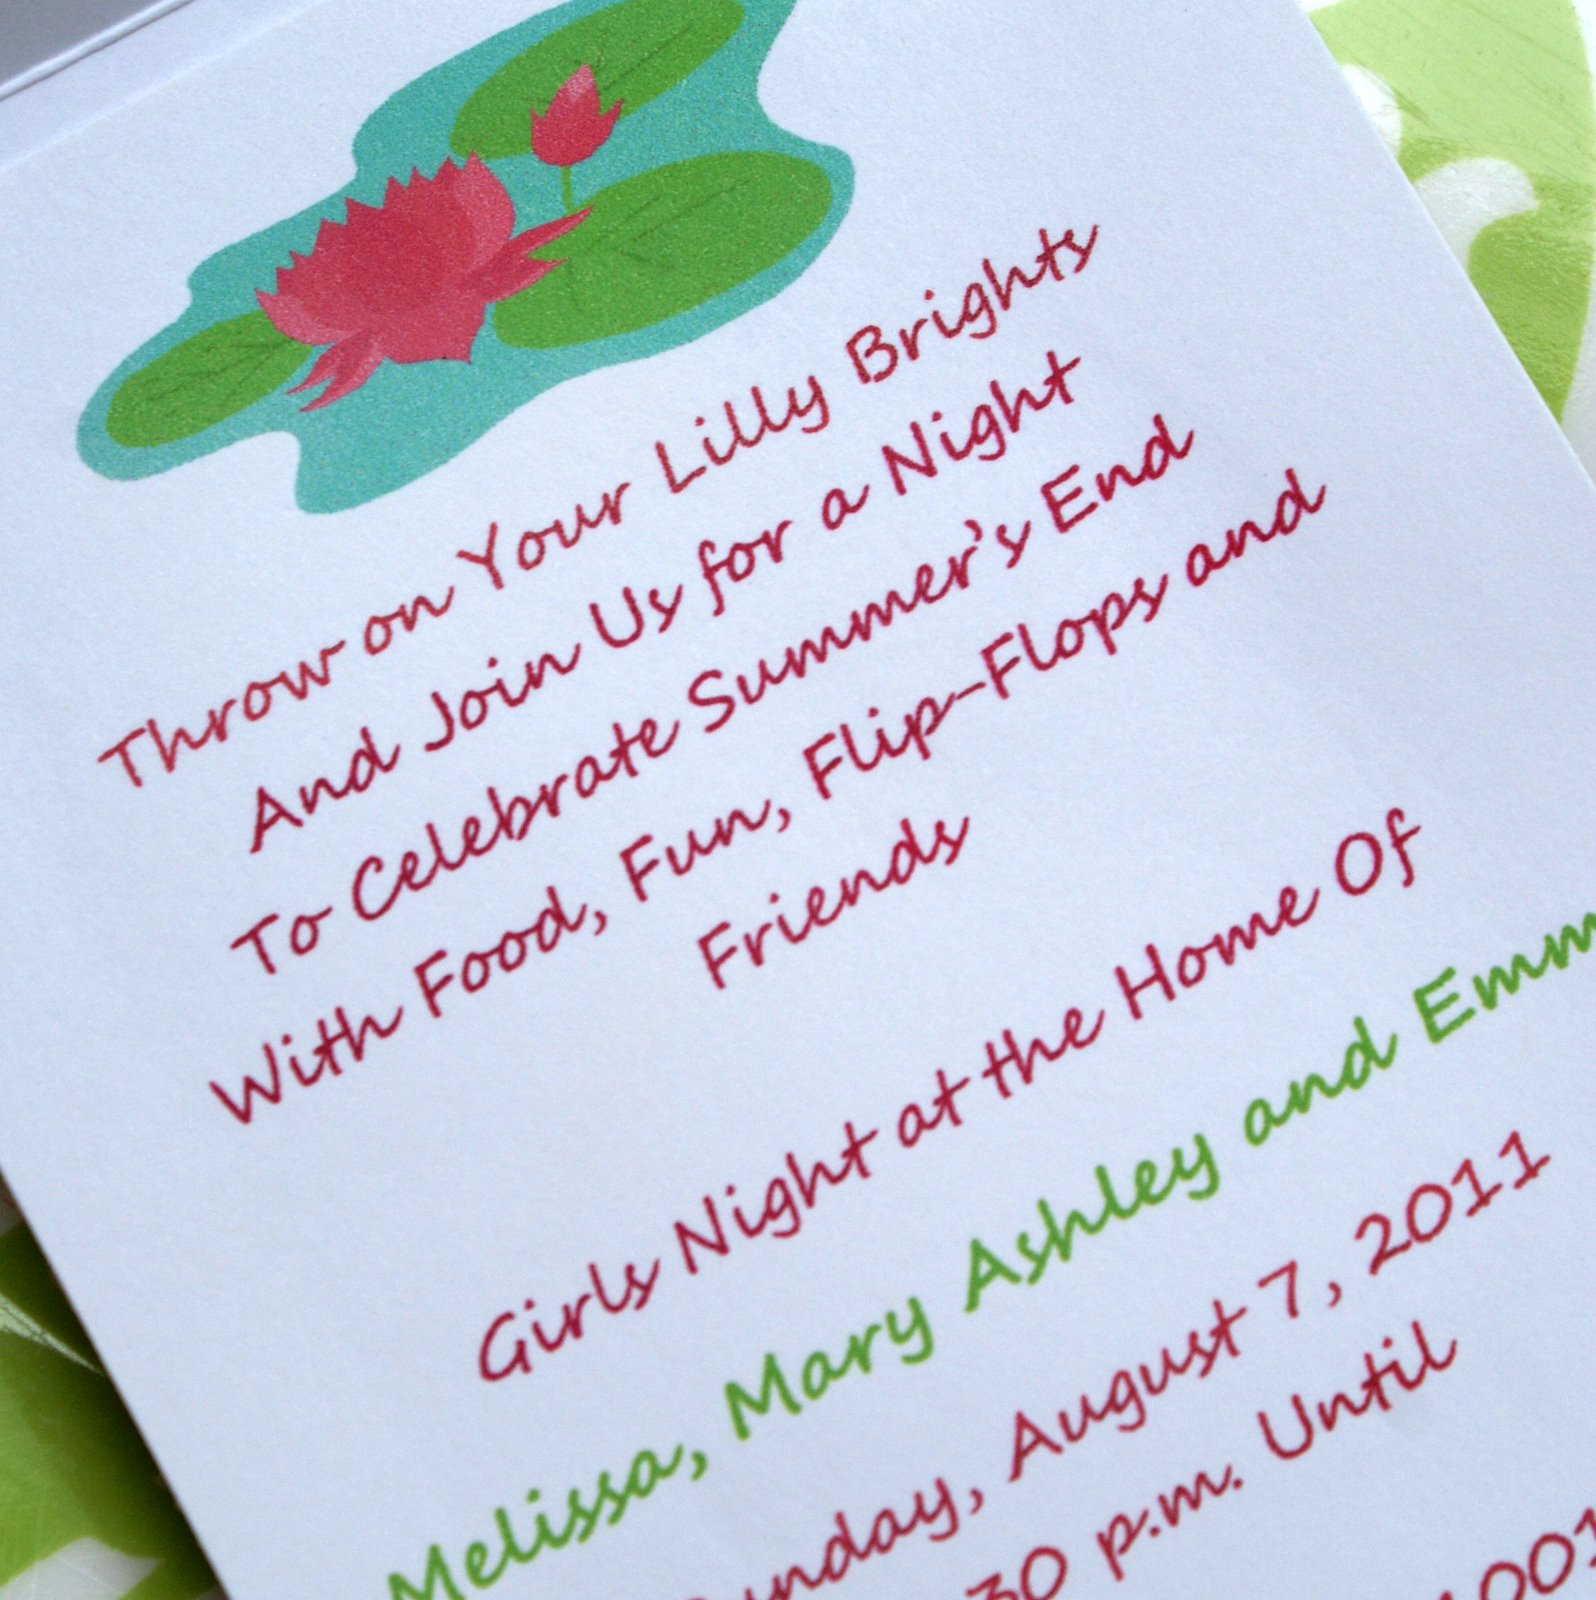 Throw on Your Lilly Brights
And Join Us for a Night
To Celebrate Summer's End
With Food, Fun, Flip-Flops and
Friends
Girls Night at the Home Of
Melissa, Mary Ashley and
August 7, 2011
30 p.m. Until